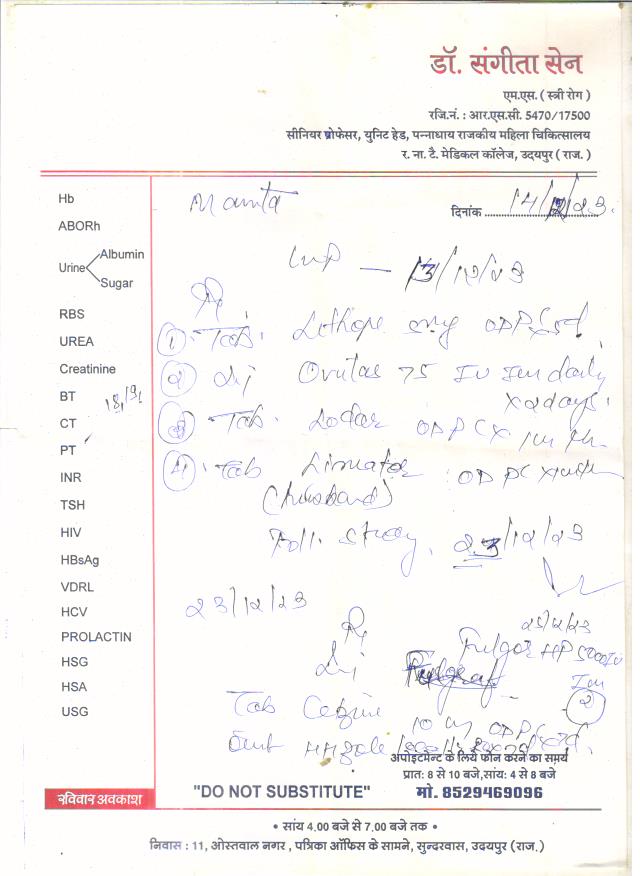 डॉ. संगीता सेन
एम.एस. ( स्त्री रोग )
रजि.नं. : आर.एस.सी. 5470/17500
सीनियर प्रोफेसर, युनिट हेड, पन्नाधाय राजकीय महिला चिकित्सालय
र. ना. टै. मेडिकल कॉलेज, उदयपुर ( राज. )
Mamta
दिनांक 14/12/23.
Hb
ABORh
Urine Albumin
Sugar
RBS
UREA
Creatinine
BT
CT
PT
INR
TSH
HIV
HBsAg
VDRL
HCV
PROLACTIN
HSG
HSA
USG
LMP — 13/12/23
Rx
1. Tab. OD PC
2 Inj 75 IU Im daily
x 2 days.
3 Tab. OD PC x
4. Tab OD PC x
(husband)
Foll. study. 23/12/23
23/12/23
Rx 25/12/23
Inj Fulgraf Fulgor HP 5000 IU
Im
2
Tab 10 OD PC
अपॉइटमेन्ट के लिये फोन करने का समय
प्रात: 8 से 10 बजे,सांय: 4 से 8 बजे
रविवार अवकाश
"DO NOT SUBSTITUTE"
मो. 8529469096
• सांय 4.00 बजे से 7.00 बजे तक •
निवास : 11, ओस्तवाल नगर , पत्रिका ऑफिस के सामने, सुन्दरवास, उदयपुर (राज.)